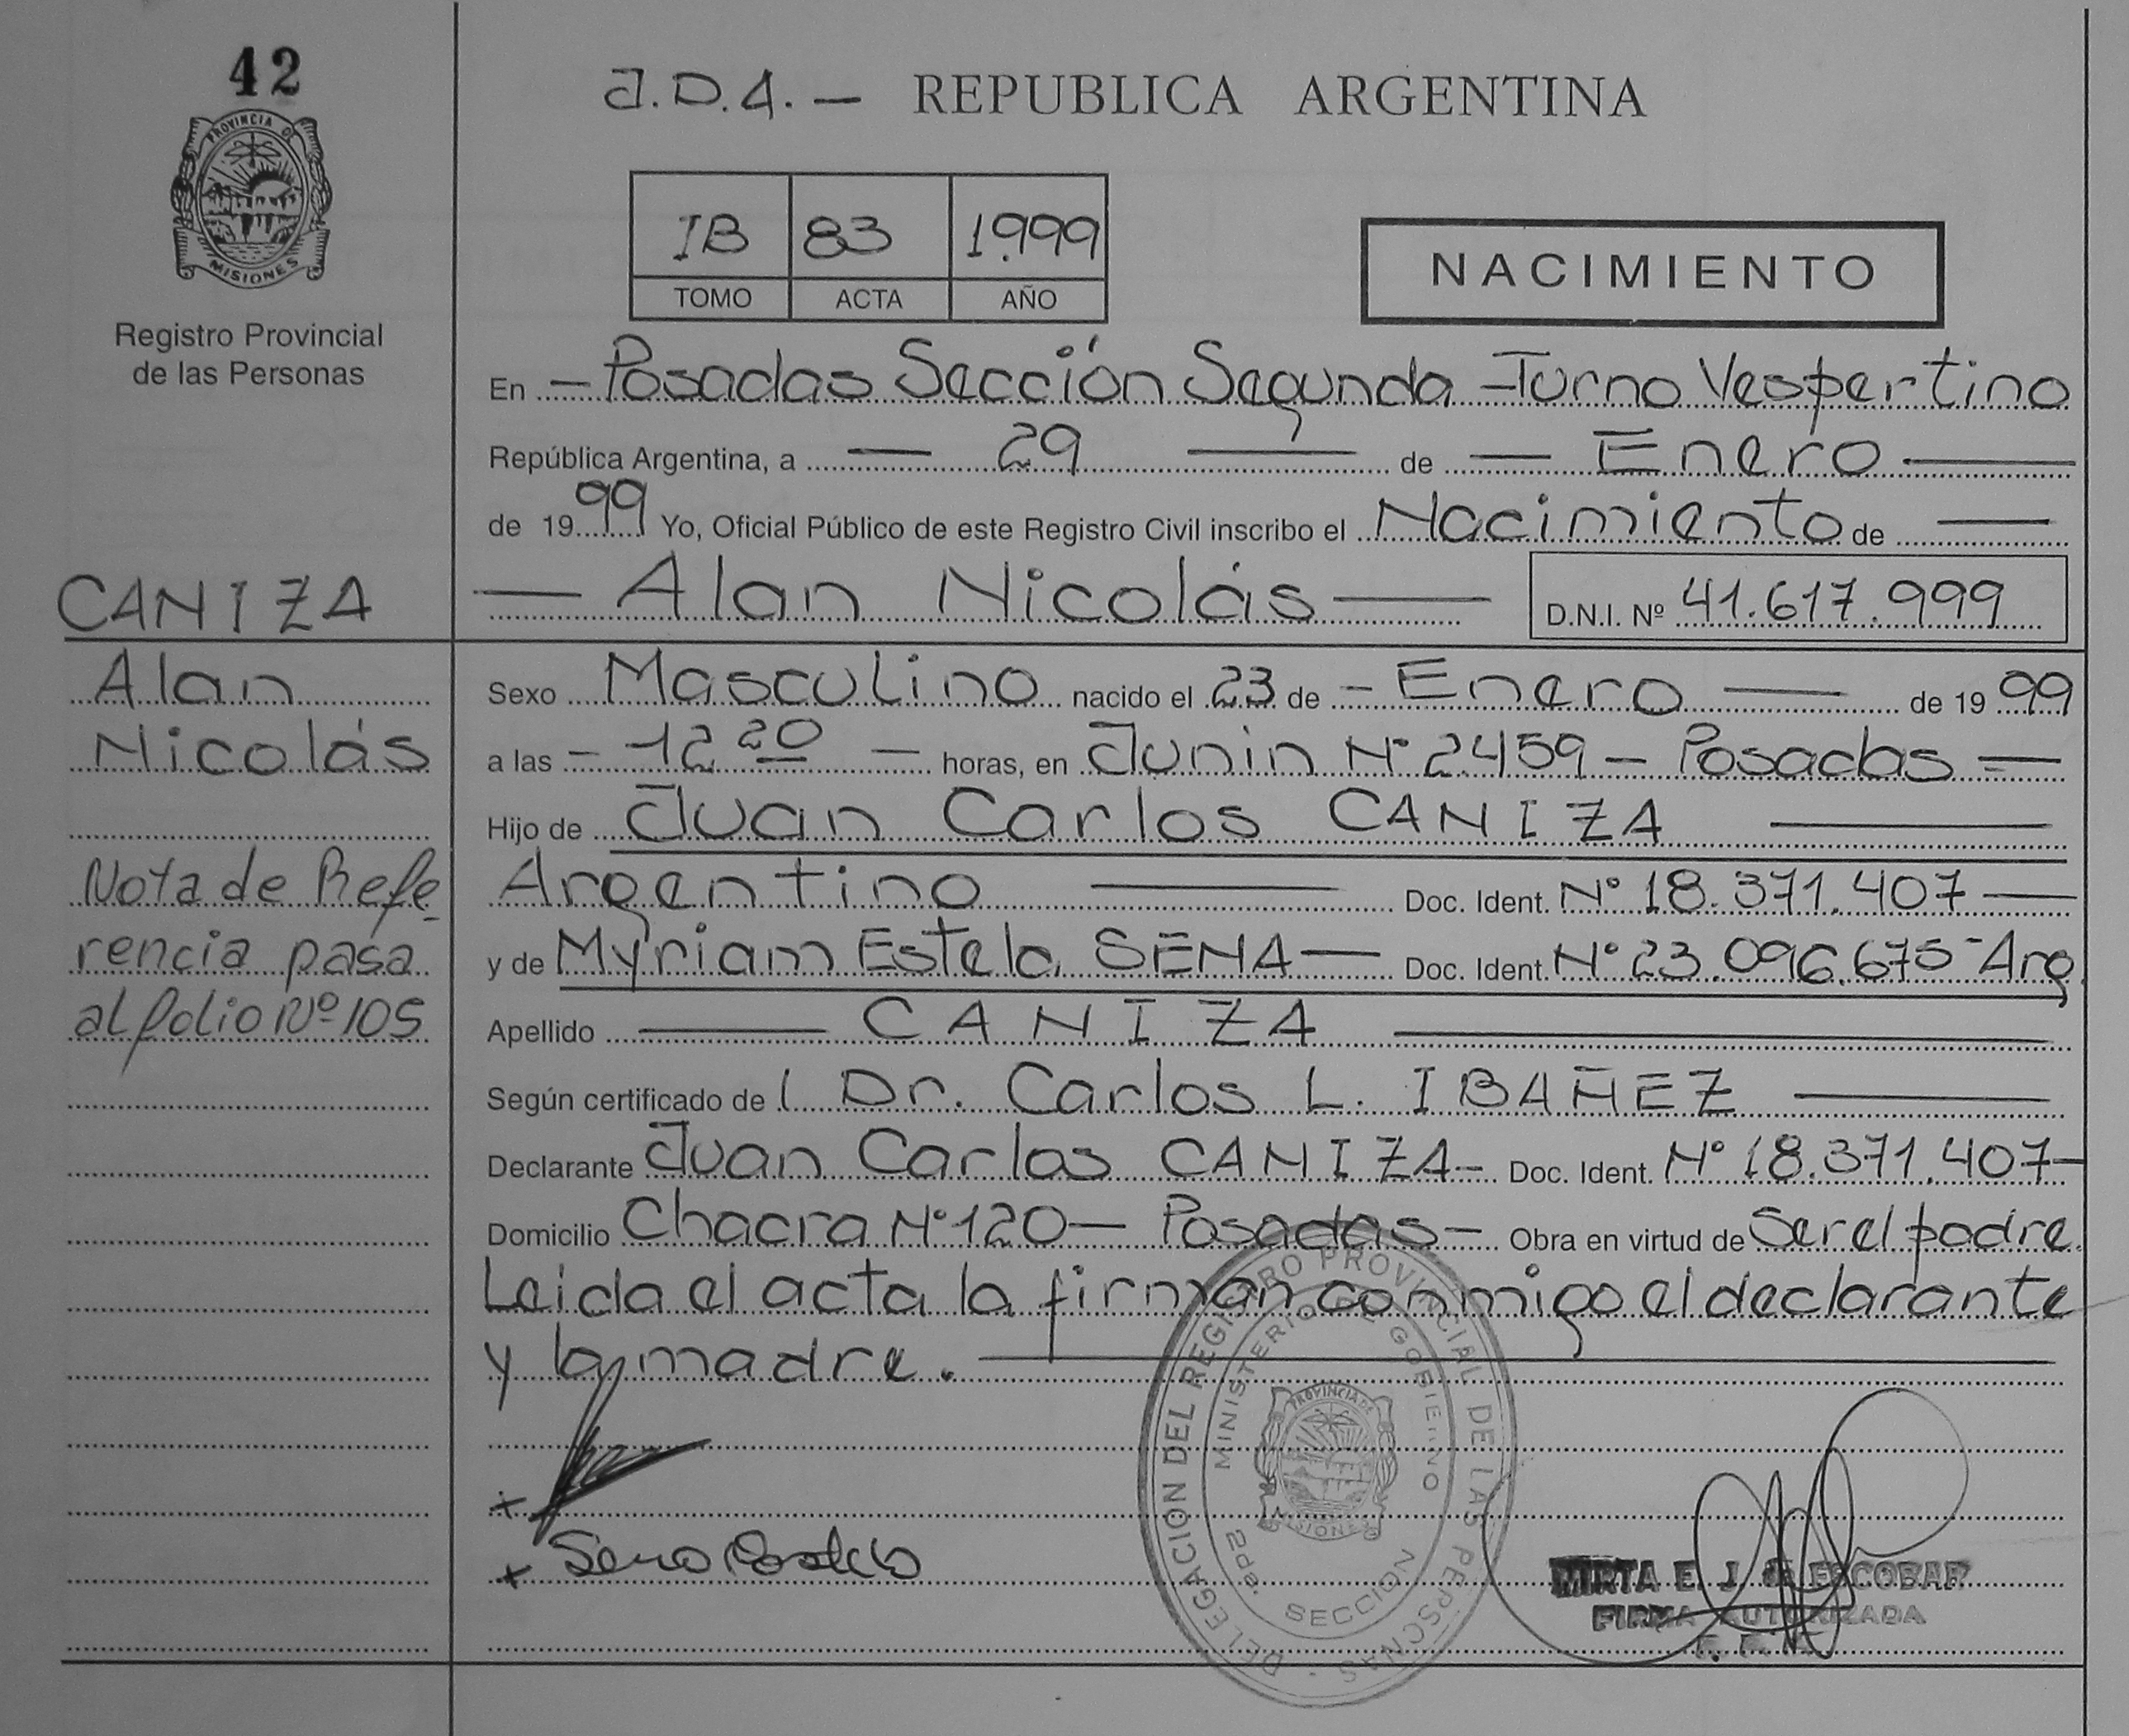 42
J.D.A. — REPUBLICA ARGENTINA
PROVINCIA DE
MISIONES
Registro Provincial
de las Personas
IB 83 1.999
TOMO ACTA AÑO
NACIMIENTO
En — Posadas Sección Segunda - Turno Vespertino
República Argentina, a — 29 — de — Enero —
de 1999 Yo, Oficial Público de este Registro Civil inscribo el Nacimiento de —
— Alan Nicolás — D.N.I. Nº 41.617.999
CANIZA
Alan
Nicolás
Nota de Refe-
rencia pasa
al folio Nº 105
Sexo Masculino nacido el 23 de - Enero — de 1999
a las - 12 20 — horas, en Junin N° 2.459 - Posadas —
Hijo de Juan Carlos CANIZA —
Argentino — Doc. Ident. N° 18.371.407 —
y de Myriam Estela SENA — Doc. Ident. N° 23.096.675 - Arg
Apellido — CANIZA —
Según certificado de l Dr. Carlos L. IBAÑEZ —
Declarante Juan Carlos CANIZA - Doc. Ident. N° 18.371.407 -
Domicilio Chacra N° 120 — Posadas - Obra en virtud de Ser el padre.
Leida el acta la firman conmigo el declarante
y la madre. —
DELEGACION DEL REGISTRO PROVINCIAL DE LAS PERSONAS -
MINISTERIO DE GOBIERNO
PROVINCIA DE
MISIONES
SECCION
MIRTA E. J. de ESCOBAR
FIRMA AUTORIZADA